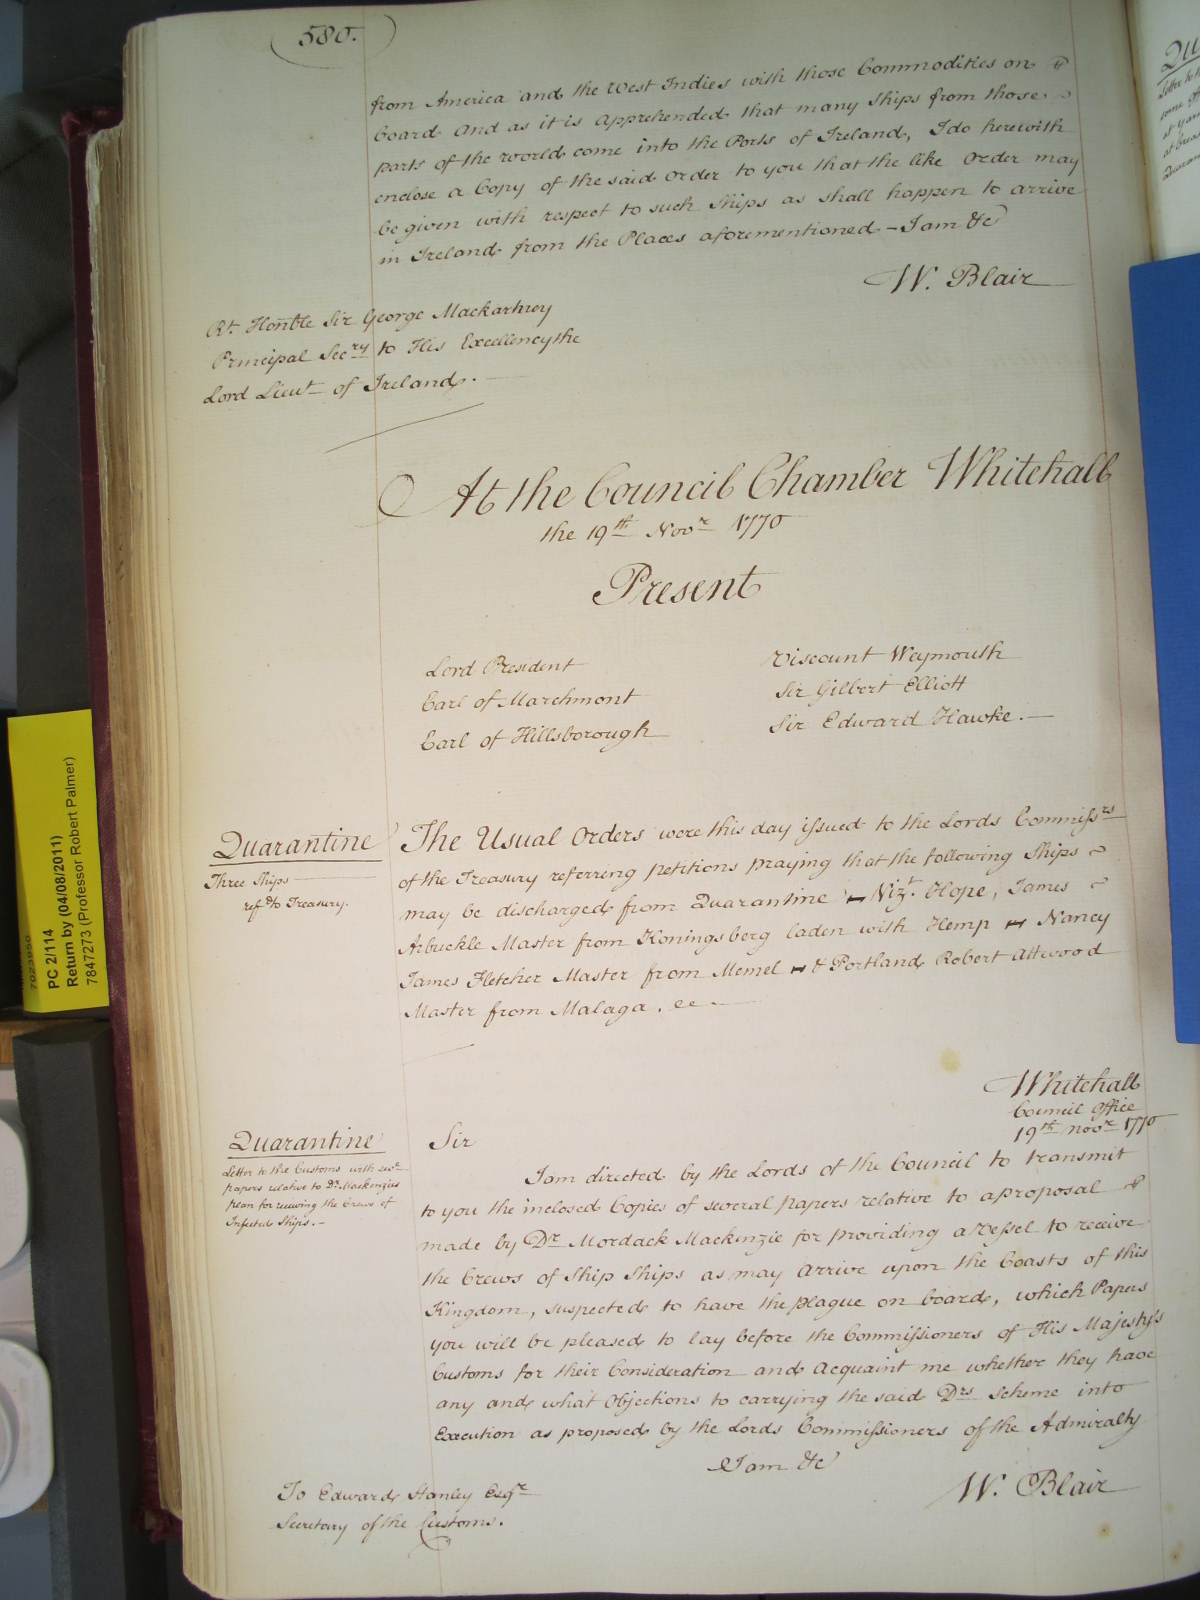 580.
from America and the West Indies with those Commodities on
board and as it is apprehended that many Ships from those
parts of the world come into the Ports of Ireland, I do herewith
enclose a Copy of the said Order to you that the like Order may
be given with respect to such Ships as shall happen to arrive
in Ireland from the Places aforementioned - I am &c
W. Blair
Rt. Honble Sir George Mackartney
Principal Secry to His Excellency the
Lord Lieut of Ireland.
At the Council Chamber Whitehall
the 19th Novr 1770
Present
Lord President
Earl of Marchmont
Earl of Hillsborough
Viscount Weymouth
Sir Gilbert Elliott
Sir Edward Hawke.
Quarantine
Three Ships
refd to Treasury.
The Usual Orders were this day issued to the Lords Commissrs
of the Treasury referring petitions praying that the following Ships
may be discharged from Quarantine - Vizt. Hope, James
Arbuckle Master from Koningsberg laden with Hemp - Nancy
James Fletcher Master from Memel - & Portland Robert Attwood
Master from Malaga.
Whitehall
Council Office
19th Novr 1770
Quarantine
Letter to the Customs with sevl
papers relative to Dr. Mackenzies
plan for receiving the Crews of
Infected Ships.-
Sir
I am directed by the Lords of the Council to transmit
to you the inclosed Copies of several papers relative to a proposal
made by Dr Mordack Mackinzie for providing a Vessel to receive
the Crews of Ship Ships as may arrive upon the Coasts of this
Kingdom, suspected to have the plague on board, which Papers
you will be pleased to lay before the Commissioners of His Majesty's
Customs for their Consideration and Acquaint me whether they have
any and what Objections to carrying the said Drs Scheme into
Execution as proposed by the Lords Commissioners of the Admiralty
I am &c
W. Blair
To Edward Stanley Esqr
Secretary of the Customs.
PC 2/114
Return by (04/08/2011)
7847273 (Professor Robert Palmer)